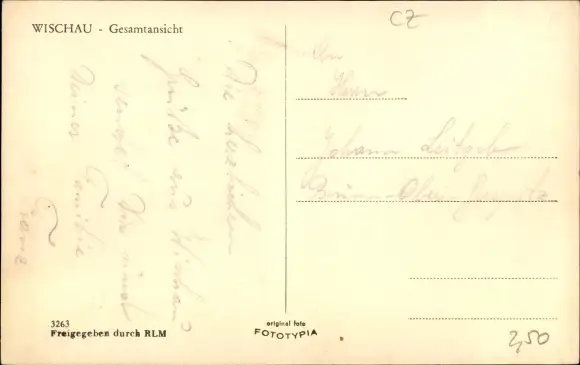 WISCHAU - Gesamtansicht
CZ
Die herzlichen
Grüße aus Wischau
sendet Dir
Deiner Familie
Franz
An
Herrn
Johann Leitgeb
Brünn - Ober
3263
Freigegeben durch RLM
original foto
FOTOTYPIA
2,50